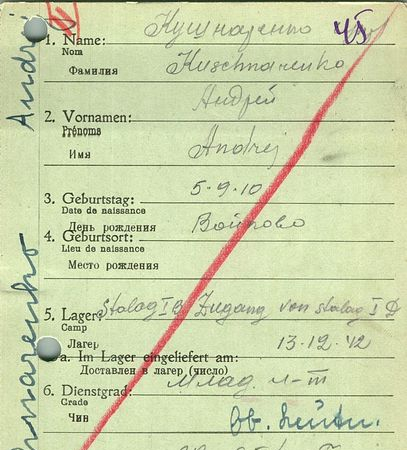 45
Кушнаренко
1. Name:
Nom
Фамилия
Kuschnarenko
Андрей
2. Vornamen:
Prénoms
Имя
Andrej
5.9.10
3. Geburtstag:
Date de naissance
День рождения
4. Geburtsort:
Lieu de naissance
Место рождения
5. Lager:
Stalag I B Zugang von Stalag I D
Camp
Лагерь
13.12.42
a. Im Lager eingeliefert am:
Доставлен в лагер (число)
6. Dienstgrad:
Млад. л-т
Grade
Чин